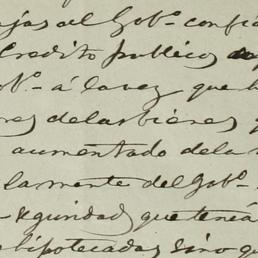 ajas al Gob.º confia
Credito publico
ob.º á la vez que h
res de las bienes q
aumentado de la
lamente del Gob.º
seguridad que tenia
hipotecadas sino qu